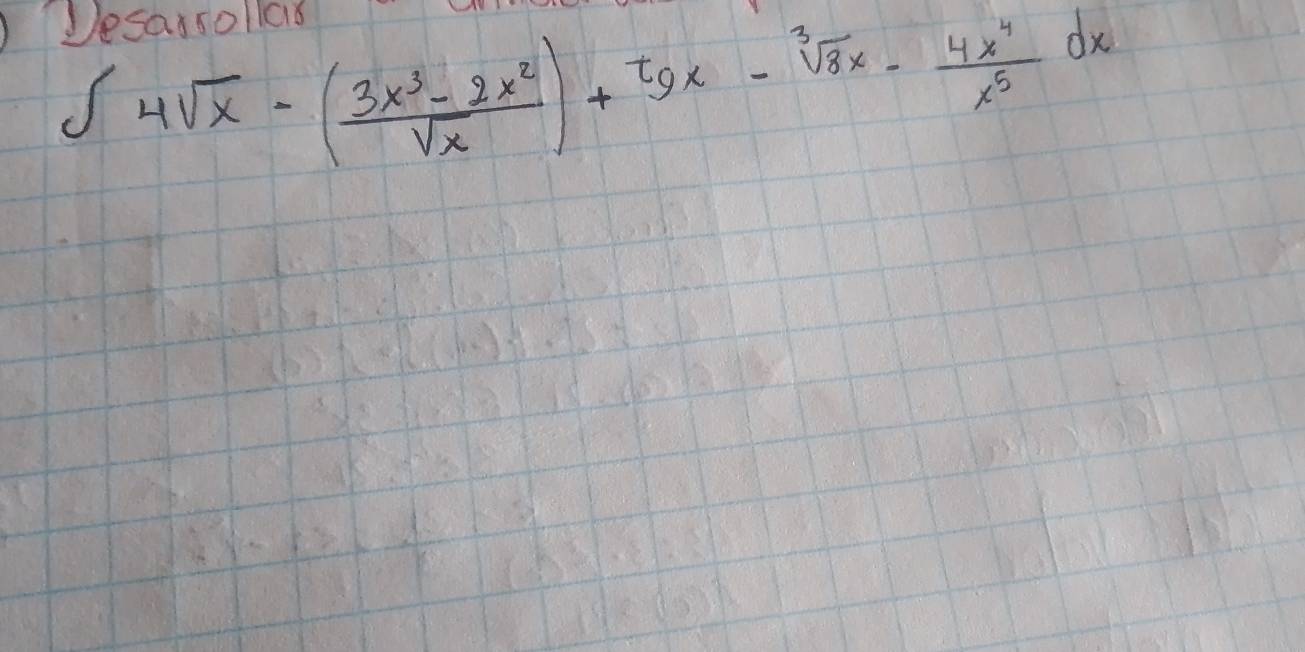 ) Desarrollar
∫ 4√x - ((3x³ - 2x²)/√x) + tgx - ∛8x - 4x⁴/x⁵ dx